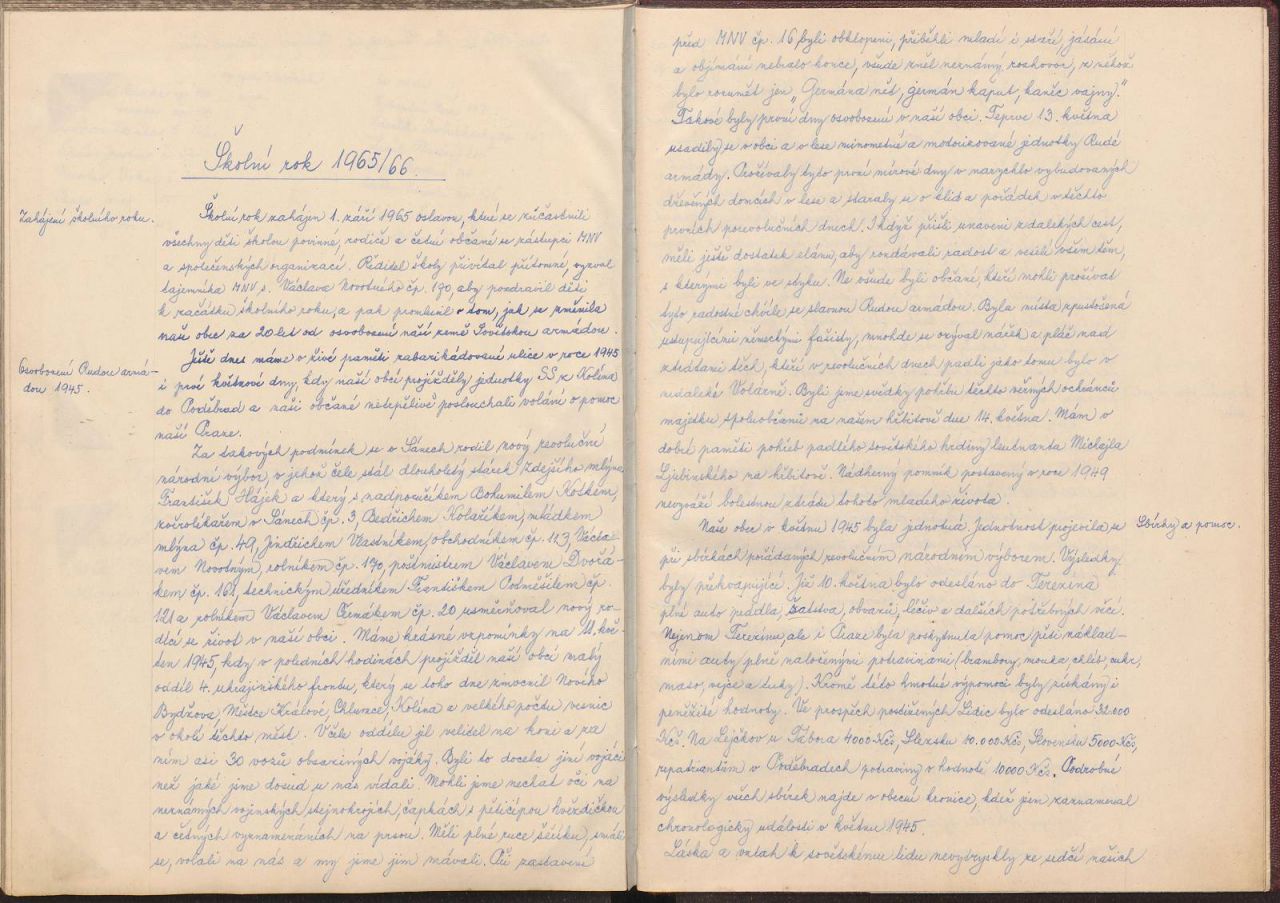 Školní rok 1965/66.
Zahájení školního roku.
Školní rok zahájen 1. září 1965 oslavou, které se zúčastnili
všechny děti školou povinné, rodiče a četní občané se zástupci MNV
a společenských organizací. Ředitel školy přivítal přítomné, vyzval
tajemníka MNV s. Václava Novotného čp. 170, aby pozdravil děti
k začátku školního roku, a pak promluvil o tom, jak se změnila
naše obec za 20 let od osvobození naší země Sovětskou armádou.
Osvobození Rudou armá-
dou 1945.
Ještě dnes máme v živé paměti zabarikádované ulice v roce 1945
i prvé květnové dny, kdy naší obcí projížděly jednotky SS z Kolína
do Poděbrad a naši občané netrpělivě poslouchali volání o pomoc
naší Praze.
Za takových podmínek se v Sánech rodil nový revoluční
národní výbor, v jehož čele stál dlouholetý stárek zdejšího mlýna
František Hájek a který s nadporučíkem Bohumilem Koťkem,
zvěrolékařem v Sánech čp. 3, Bedřichem Kolaříkem, mládkem
mlýna čp. 49, Jindřichem Vlastníkem, obchodníkem čp. 123, Václa-
vem Novotným, rolníkem čp. 170, poštmistrem Václavem Dvořá-
kem čp. 161, technickým úředníkem Františkem Podměšilem čp.
121 a rolníkem Václavem Čermákem čp. 20 usměrňoval nový ro-
dící se život v naší obci. Máme krásné vzpomínky na 11. kvě-
ten 1945, kdy v poledních hodinách projížděl naší obcí malý
oddíl 4. ukrajinského frontu, který se toho dne zmocnil Nového
Bydžova, Městce Králové, Chlumce, Kolína a velkého počtu vesnic
v okolí těchto měst. V čele oddílu jel velitel na koni a za
ním asi 30 vozů obsazených vojáky. Byli to docela jiní vojáci
než jaké jsme dosud u nás vídali. Mohli jsme nechat oči na
neznámých vojenských stejnokrojích, čapkách s pěticípou hvězdičkou
a četných vyznamenáních na prsou. Měli plné ruce šeříku, smáli
se, volali na nás a my jsme jim mávali. Při zastavení
před MNV čp. 16 byli obklopeni, přiběhli mladí i staří, jásání
a objímání nebralo konce, všude zněl neznámý rozhovor, z něhož
bylo rozumět jen „Germána nět, germán kaput, kaněc vajny."
Takové byly první dny osvobození v naší obci. Teprve 13. května
usadily se v obci a v lese minometné a motorizované jednotky Rudé
armády. Prožívaly tyto první mírové dny v narychlo vybudovaných
dřevěných domcích v lese a staraly se o klid a pořádek v těchto
prvních porevolučních dnech. I když přišli unaveni z dalekých cest,
měli ještě dostatek elánu, aby rozdávali radost a veselí všem těm,
s kterými byli ve styku. Ne všude byli občané, kteří mohli prožívat
tyto radostné chvíle se slavnou Rudou armádou. Byla místa zpustošená
ustupujícími německými fašisty, mnohde se ozýval nářek a pláč nad
ztrátami těch, kteří v revolučních dnech padli jako tomu bylo v
nedaleké Volárně. Byli jsme svědky pohřbu těchto věrných ochránců
majetku spoluobčanů na našem hřbitově dne 14. května. Mám v
dobré paměti pohřeb padlého sovětského hrdiny leutnanta Michajla
Ljublinského na hřbitově. Nádherný pomník postavený v roce 1949
nevyváží bolestnou ztrátu tohoto mladého života.
Sbírky a pomoc.
Naše obec v květnu 1945 byla jednotná. Jednotnost projevila se
při sbírkách pořádaných revolučním národním výborem. Výsledky
byly překvapující. Již 10. května bylo odesláno do Terezína
plné auto prádla, šatstva, obvazů, léčiv a dalších potřebných věcí.
Nejenom Terezínu, ale i Praze byla poskytnuta pomoc pěti náklad-
ními auty plně naloženými potravinami (brambory, mouka, chléb, cukr,
maso, vejce a tuky). Kromě této hmotné výpomoci byly získány i
peněžité hodnoty. Ve prospěch postižených Lidic bylo odesláno 32.000
Kčs. Na Lejčkov u Tábora 4000 Kčs, Slezsku 10.000 Kčs, Slovensku 5000 Kčs,
repatriantům v Poděbradech potraviny v hodnotě 10000 Kčs. Podrobné
výsledky všech sbírek najde v obecní kronice, kdež jsem zaznamenal
chronologicky události v květnu 1945.
Láska a vztah k sovětskému lidu nevytryskly ze srdcí našich